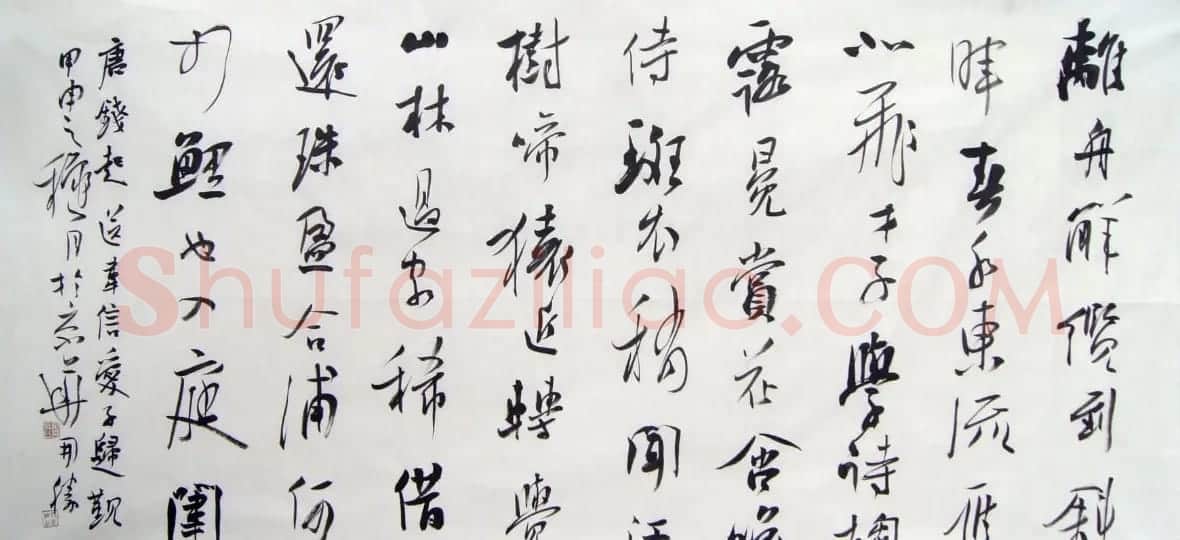 離舟解纜到斜
暉春水東流雁
北飛才子學詩趨
露冕賞花舍
侍班衣稍聞江
樹啼猿近轉覺
山林過客稀借
還珠盈合浦何
如鯉也入庭闈
唐錢起送韋信愛子歸覲
甲申之穐月於京華
Shufaziliao.COM